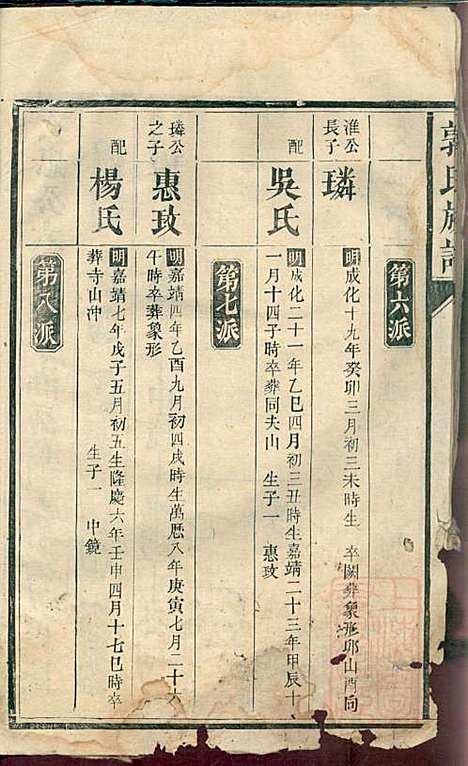 郭氏族譜
第六派
淮公長子
璘
明成化十九年癸卯三月初三未時生 卒闕葬象形卯山酉向
配
吳氏
明成化二十一年乙巳四月初三丑時生嘉靖二十三年甲辰十
一月十四子時卒葬同夫山 生子一 惠玫
第七派
璘公之子
惠玫
明嘉靖四年乙酉九月初四戌時生萬曆八年庚寅七月二十六
午時卒葬象形
配
楊氏
明嘉靖七年戊子五月初五生隆慶六年壬申四月十七巳時卒
葬寺山沖 生子一 中鏡
第八派